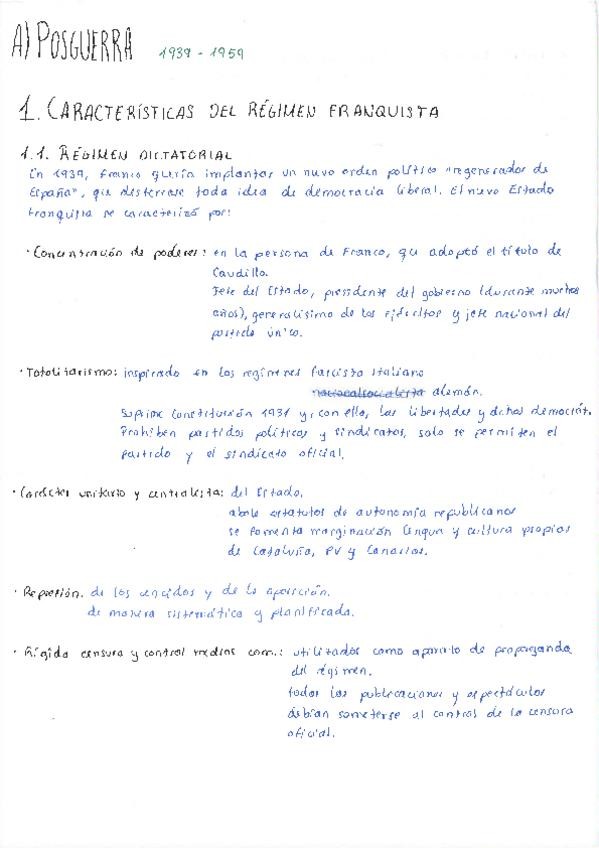 A) POSGUERRA 1939 - 1959
1. CARACTERÍSTICAS DEL RÉGIMEN FRANQUISTA
1.1. RÉGIMEN DICTATORIAL
En 1939, Franco quería implantar un nuevo orden político "regenerador de
España", que desterrase toda idea de democracia liberal. El nuevo Estado
franquista se caracterizó por:
· Concentración de poderes: en la persona de Franco, que adoptó el título de
Caudillo.
Jefe del Estado, presidente del gobierno (durante muchos
años), generalísimo de los ejércitos y jefe nacional del
partido único.
· Totalitarismo: inspirado en los regímenes fascista italiano
nacionalsocialista alemán.
Suprime Constitución 1931 y, con ello, las libertades y dchos democrát.
Prohíben partidos políticos y sindicatos, solo se permiten el
partido y el sindicato oficial.
· Carácter unitario y centralista: del Estado.
abole estatutos de autonomía republicanos
se fomenta marginación lengua y cultura propias
de Cataluña, PV y Canarias.
· Represión. de los vencidos y de la oposición.
de manera sistemática y planificada.
· Rígida censura y control medios com.: utilizados como aparato de propaganda
del régimen.
todas las publicaciones y espectáculos
debían someterse al control de la censura
oficial.